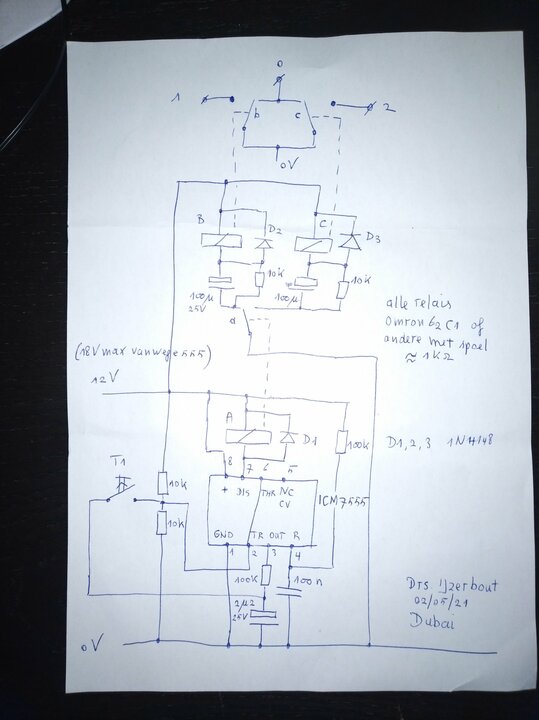 0
1
b
c
2
0V
B
D2
C
D3
10k
10k
100µ
25V
100µ
a
alle relais
Omron G2C1 of
andere met spoel
≈ 1kΩ
(18V max vanwege 555)
12V
A
D1
100k
D1,2,3 1N4148
8 7 6 5
T1
10k
+ DIS THR NC
CV
ICM7555
10k
GND TR OUT R
1 2 3 4
100k
100n
2µ2
25V
Drs IJzerbout
02/05/21
Dubai
0V